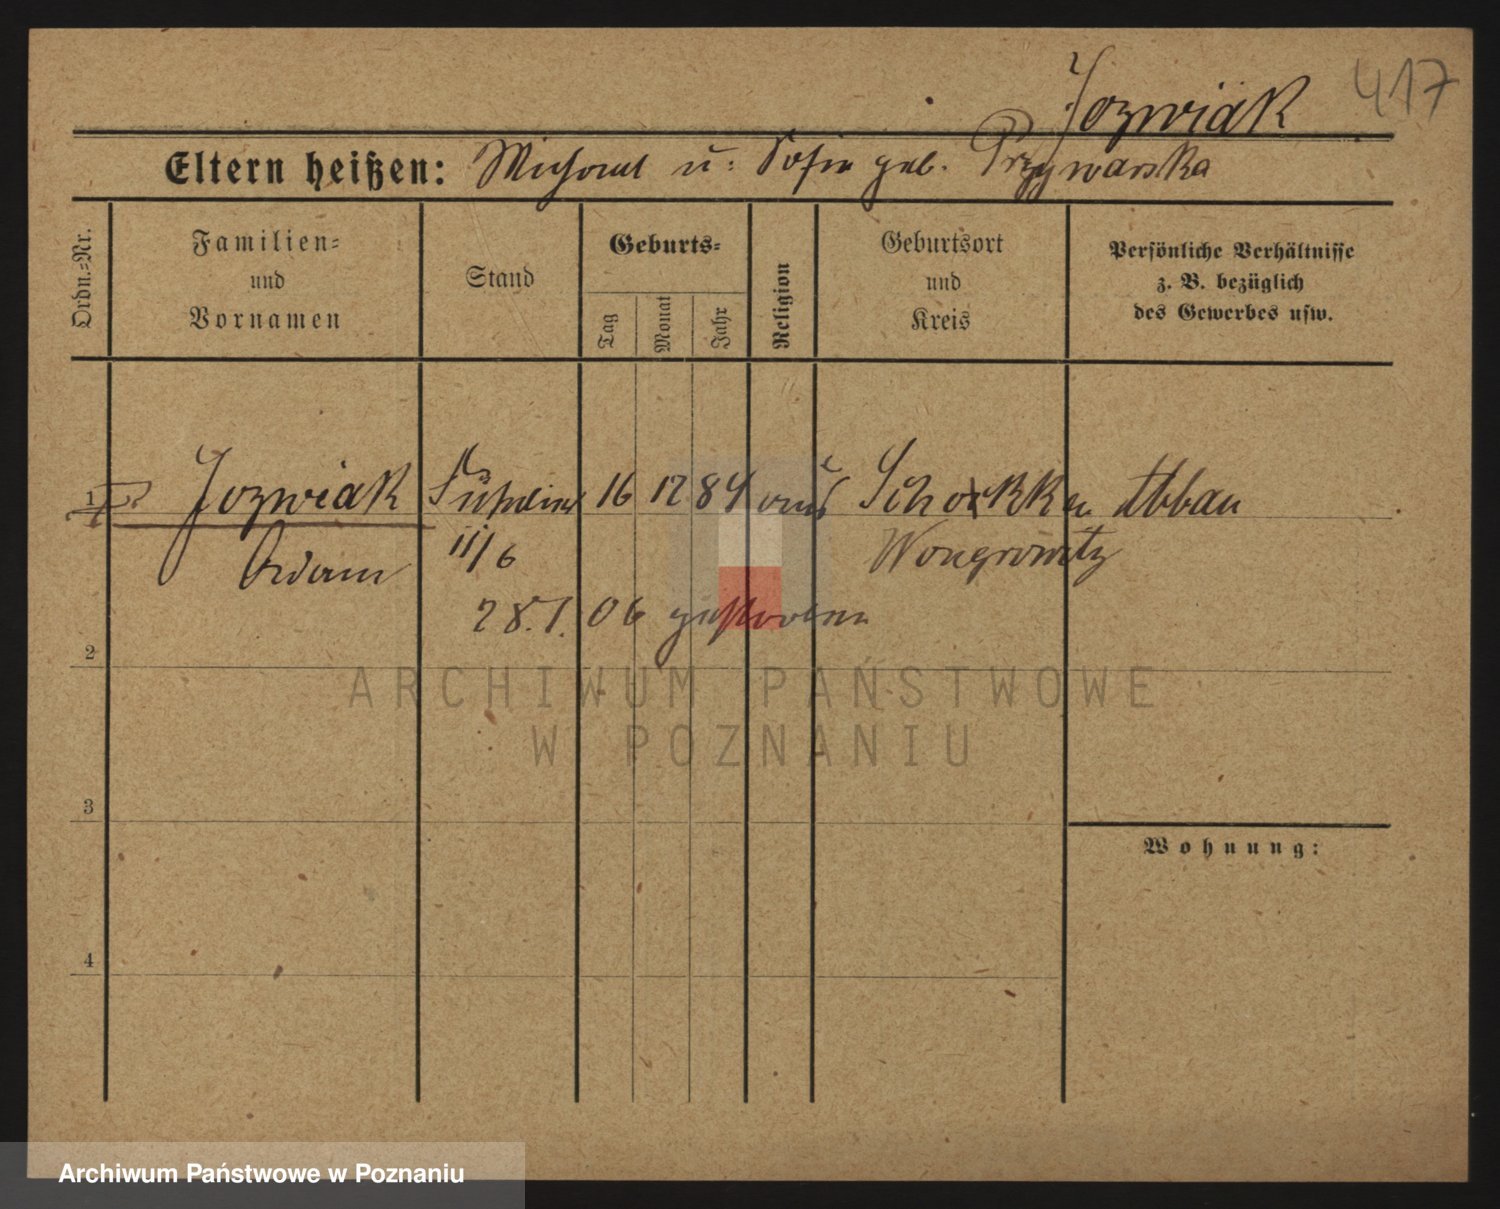 417
Jozwiak
Eltern heißen: Michael u. Sofie geb. Przywarska
Ordn.-Nr.
Familien-
und
Vornamen
Stand
Geburts-
Tag
Monat
Jahr
Religion
Geburtsort
und
Kreis
Persönliche Verhältnisse
z. B. bezüglich
des Gewerbes usw.
1 Jozwiak 16 12 84 Schokken Abbau
Adam 11/6 Wongrowitz
28.1.06 gestorben
2
ARCHIWUM PAŃSTWOWE
W POZNANIU
3
Wohnung:
4
Archiwum Państwowe w Poznaniu